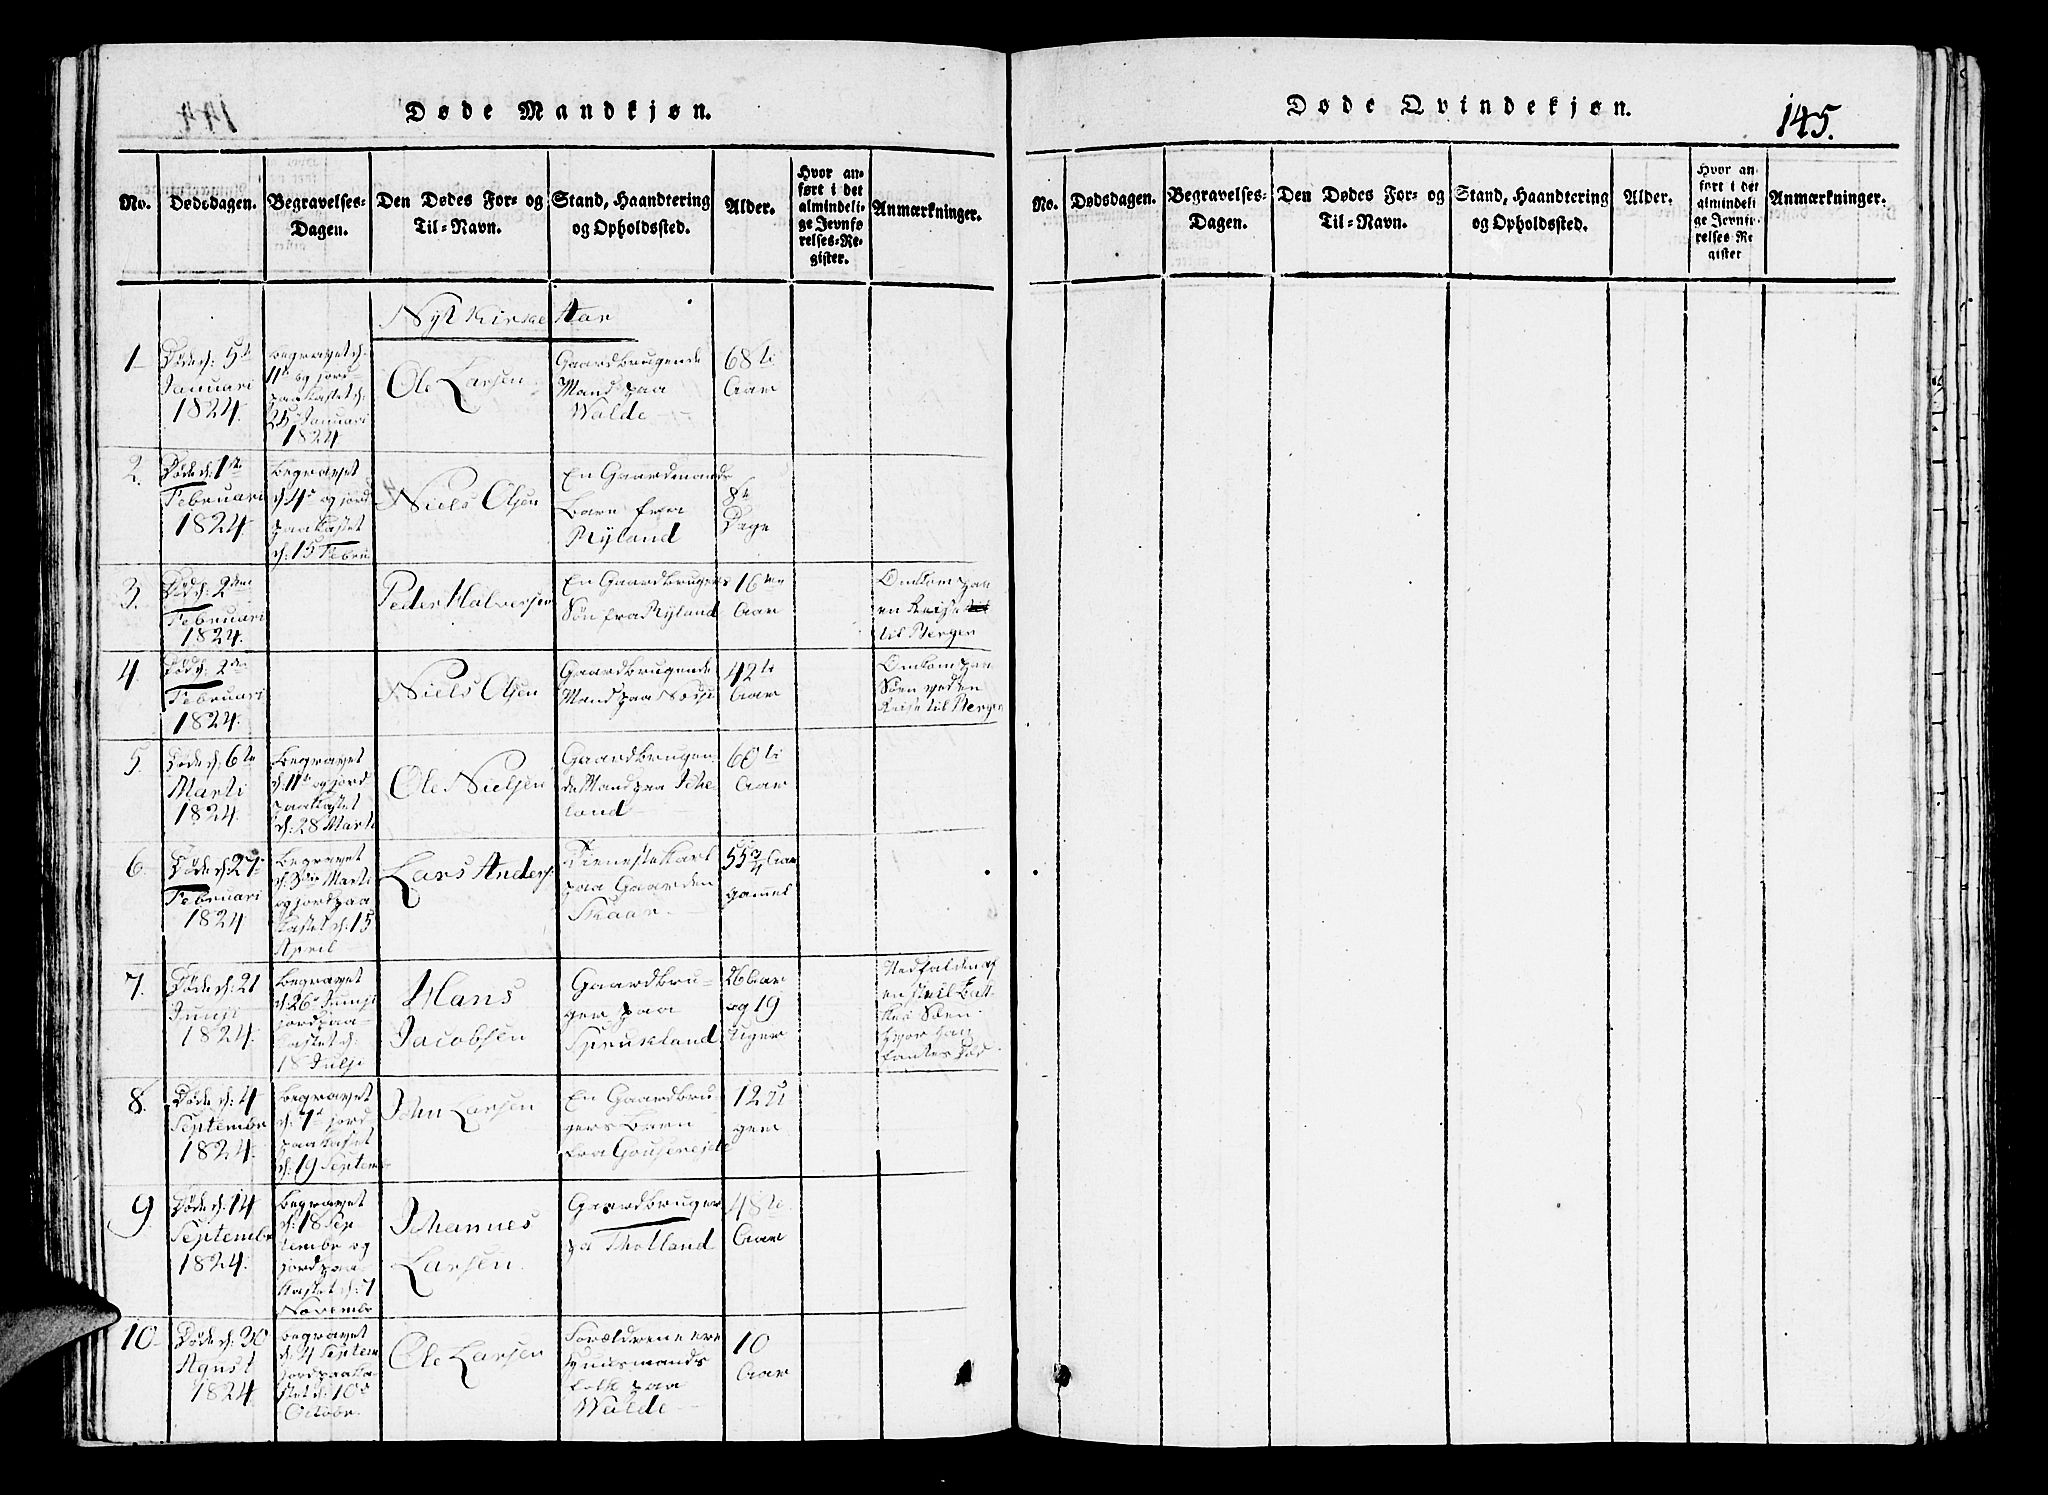 Døde Mandkjøn.
No.
Dødsdagen.
Begravelses-
Dagen.
Den Dødes For- og
Til-Navn.
Stand, Haandtering
og Opholdssted.
Alder.
Hvor an-
ført i det
almindeli-
ge Jevnfø-
relses-Re-
gister.
Anmærkninger.
Nyt Kirke Aar
1
Døde d: 5te
Januari
1824.
begravet d.
11te og jord
paakastet d.
25 Januari
1824
Ole Larsen
Gaardbrugende
Mand paa
Walde
68 ti
Aar
2.
Døde d: 1ste
Februari
1824.
begravet
d: 4de og jord
paakastet
d: 15 Febru
Niels Olsen
En Gaardmands
barn fra
Ryland
8te
Dage
3.
Død d: 2den
Februari
1824.
Peder Halversen
En Gaardbrugers
Søn fra Ryland
16ten
Aar
Omkom paa
en Reise
til Bergen
4.
Død d: 2den
Februari
1824.
Niels Olsen
Gaardbrugende
Mand paa
42 ti
Aar
Omkom paa
Søen ved en
Reise til Bergen
5.
Døde d: 6te
Marti
1824.
begravet
d: 11te og jord
paakastet
d: 28 Marti
Ole Nielsen
Gaardbrugen-
de Mand paa
land
60 ti
Aar
6.
Døde d: 27
Februari
1824
begravet
d: 3die Marti
og jord paa
kastet d: 15
April
Lars Anders:
Tieneste Karl
paa Gaarden
Skaar
55 3/4 Aar
gammel
7.
Døde d: 21
Junji
1824.
begravet
d: 26de Junji
jord paa-
kastet d:
18 Julji
Hans
Jacobsen
Gaardbru-
ger paa
26 Aar
og 19
Uger
Nedfalden af
en
Søen
hvor han
fantes død
8.
Døde d: 4
Septembr
1824.
begravet
d. 7de jord
paakastet
d: 19 Septemb
John Larsen
En Gaardbru-
gers barn
fra
12 U
ger
9
Døde d: 14
Septembr
1824.
begravet
d: 18 Sep
tembr og
jord paa-
kastet d: 7
Novembr
Johannes
Larsen.
Gaardbruger
pa
48 ti
Aar
10
Døde d: 30
Agust
1824
begravet
d: 4 Septem
jord paaka-
stet d: 10de
Octobr.
Ole Larsen
Forældrene ere
Huusmands
folk paa
Walde
10
Aar
Døde Qvindekjøn.
145.
No.
Dødsdagen.
Begravelses-
Dagen.
Den Dødes For- og
Til-Navn.
Stand, Haandtering
og Opholdssted.
Alder.
Hvor an-
ført i det
almindeli
ge Jevnfø-
relses Re
gister
Anmærkninger.